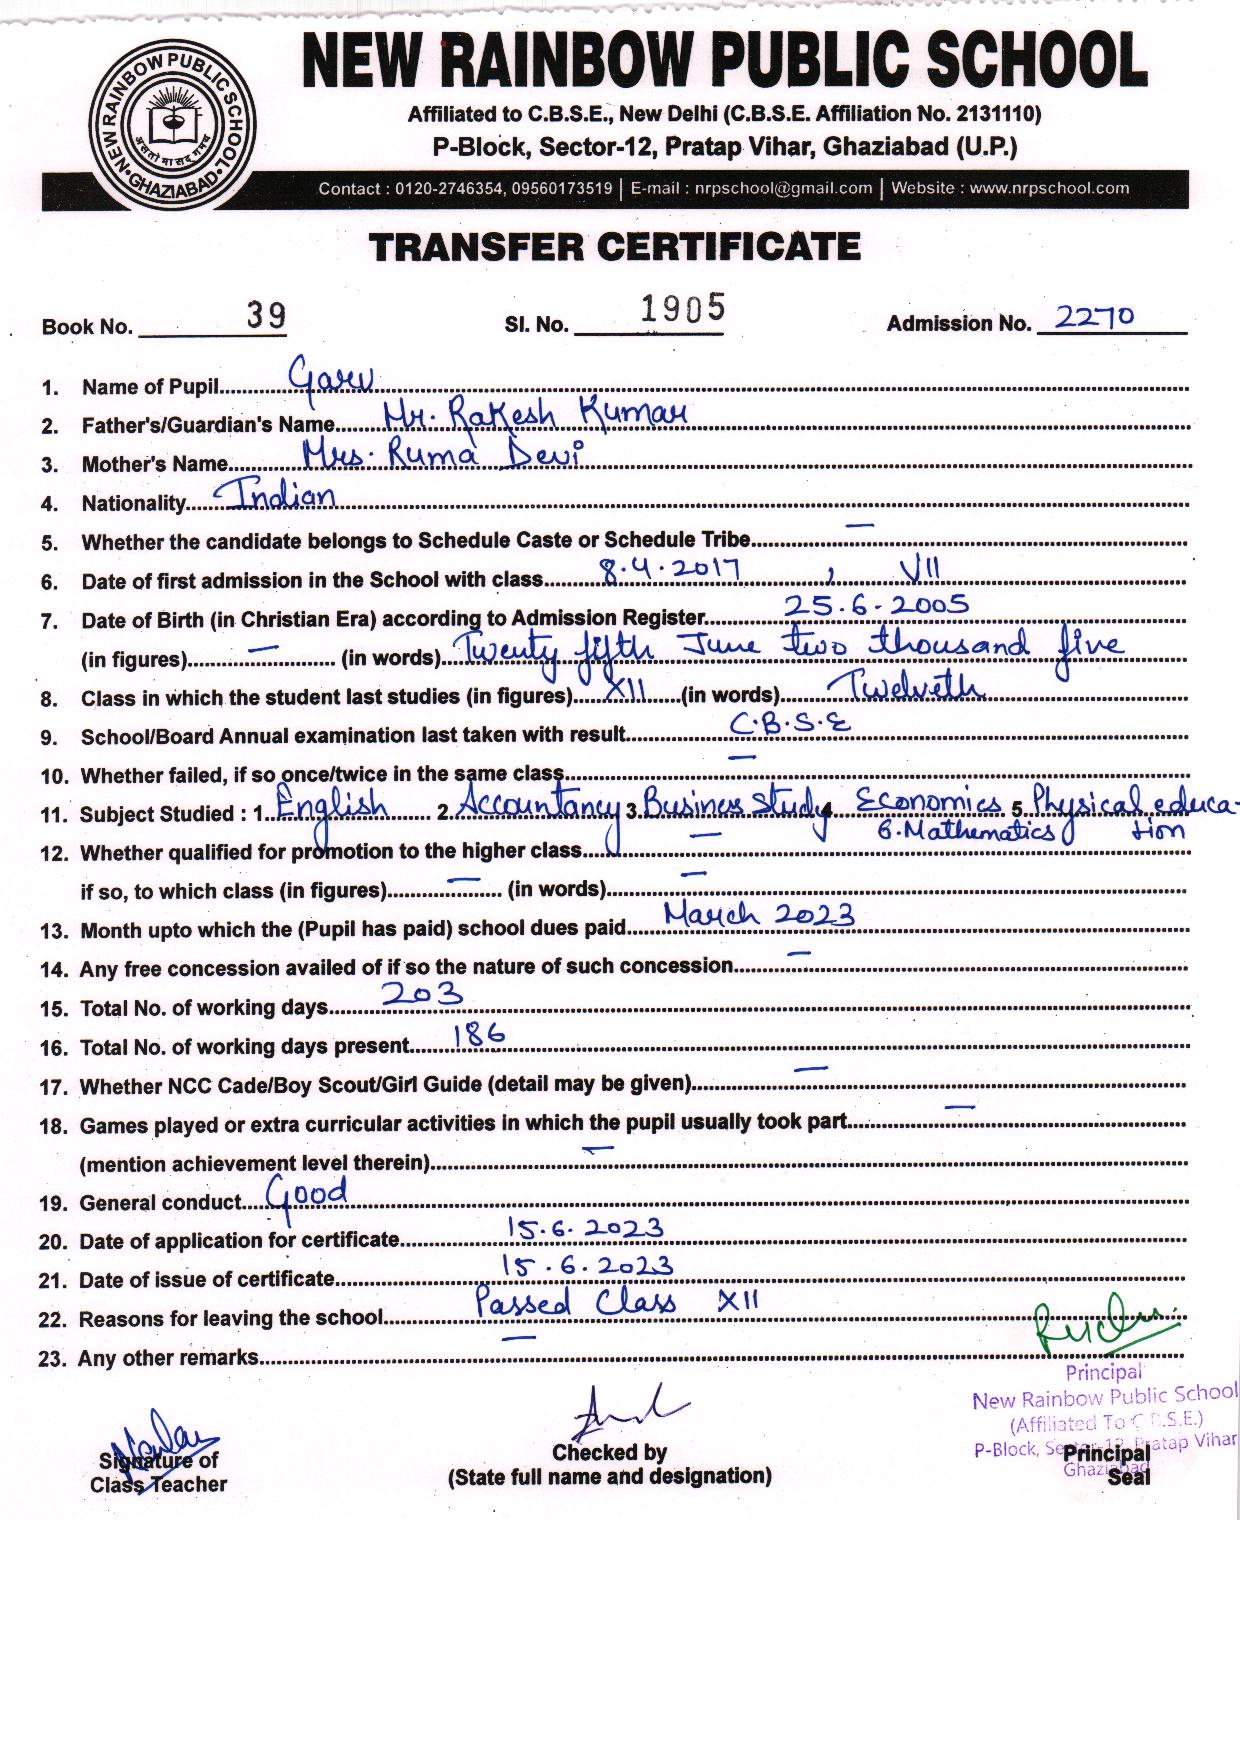 NEW RAINBOW PUBLIC SCHOOL
Affiliated to C.B.S.E., New Delhi (C.B.S.E. Affiliation No. 2131110)
P-Block, Sector-12, Pratap Vihar, Ghaziabad (U.P.)
NEW RAINBOW PUBLIC SCHOOL • GHAZIABAD •
असतो मा सद् गमय
Contact : 0120-2746354, 09560173519 | E-mail : nrpschool@gmail.com | Website : www.nrpschool.com
TRANSFER CERTIFICATE
Book No. 39 Sl. No. 1905 Admission No. 2270
1. Name of Pupil Garv
2. Father's/Guardian's Name Mr. Rakesh Kumar
3. Mother's Name Mrs. Ruma Devi
4. Nationality Indian
5. Whether the candidate belongs to Schedule Caste or Schedule Tribe —
6. Date of first admission in the School with class 8.4.2017 , VII
7. Date of Birth (in Christian Era) according to Admission Register 25.6.2005
(in figures) — (in words) Twenty fifth June two thousand five
8. Class in which the student last studies (in figures) XII (in words) Twelveth
9. School/Board Annual examination last taken with result C.B.S.E
10. Whether failed, if so once/twice in the same class —
11. Subject Studied : 1. English 2. Accountancy 3. Business Study 4. Economics 5. Physical educa-
6. Mathematics tion
12. Whether qualified for promotion to the higher class —
if so, to which class (in figures) — (in words) —
13. Month upto which the (Pupil has paid) school dues paid March 2023
14. Any free concession availed of if so the nature of such concession —
15. Total No. of working days 203
16. Total No. of working days present 186
17. Whether NCC Cade/Boy Scout/Girl Guide (detail may be given) —
18. Games played or extra curricular activities in which the pupil usually took part —
(mention achievement level therein) —
19. General conduct Good
20. Date of application for certificate 15.6.2023
21. Date of issue of certificate 15.6.2023
22. Reasons for leaving the school Passed Class XII
23. Any other remarks —
Principal
New Rainbow Public School
(Affiliated To C.B.S.E.)
P-Block, Sector-12, Pratap Vihar
Ghaziabad
Signature of
Class Teacher
Checked by
(State full name and designation)
Principal
Seal